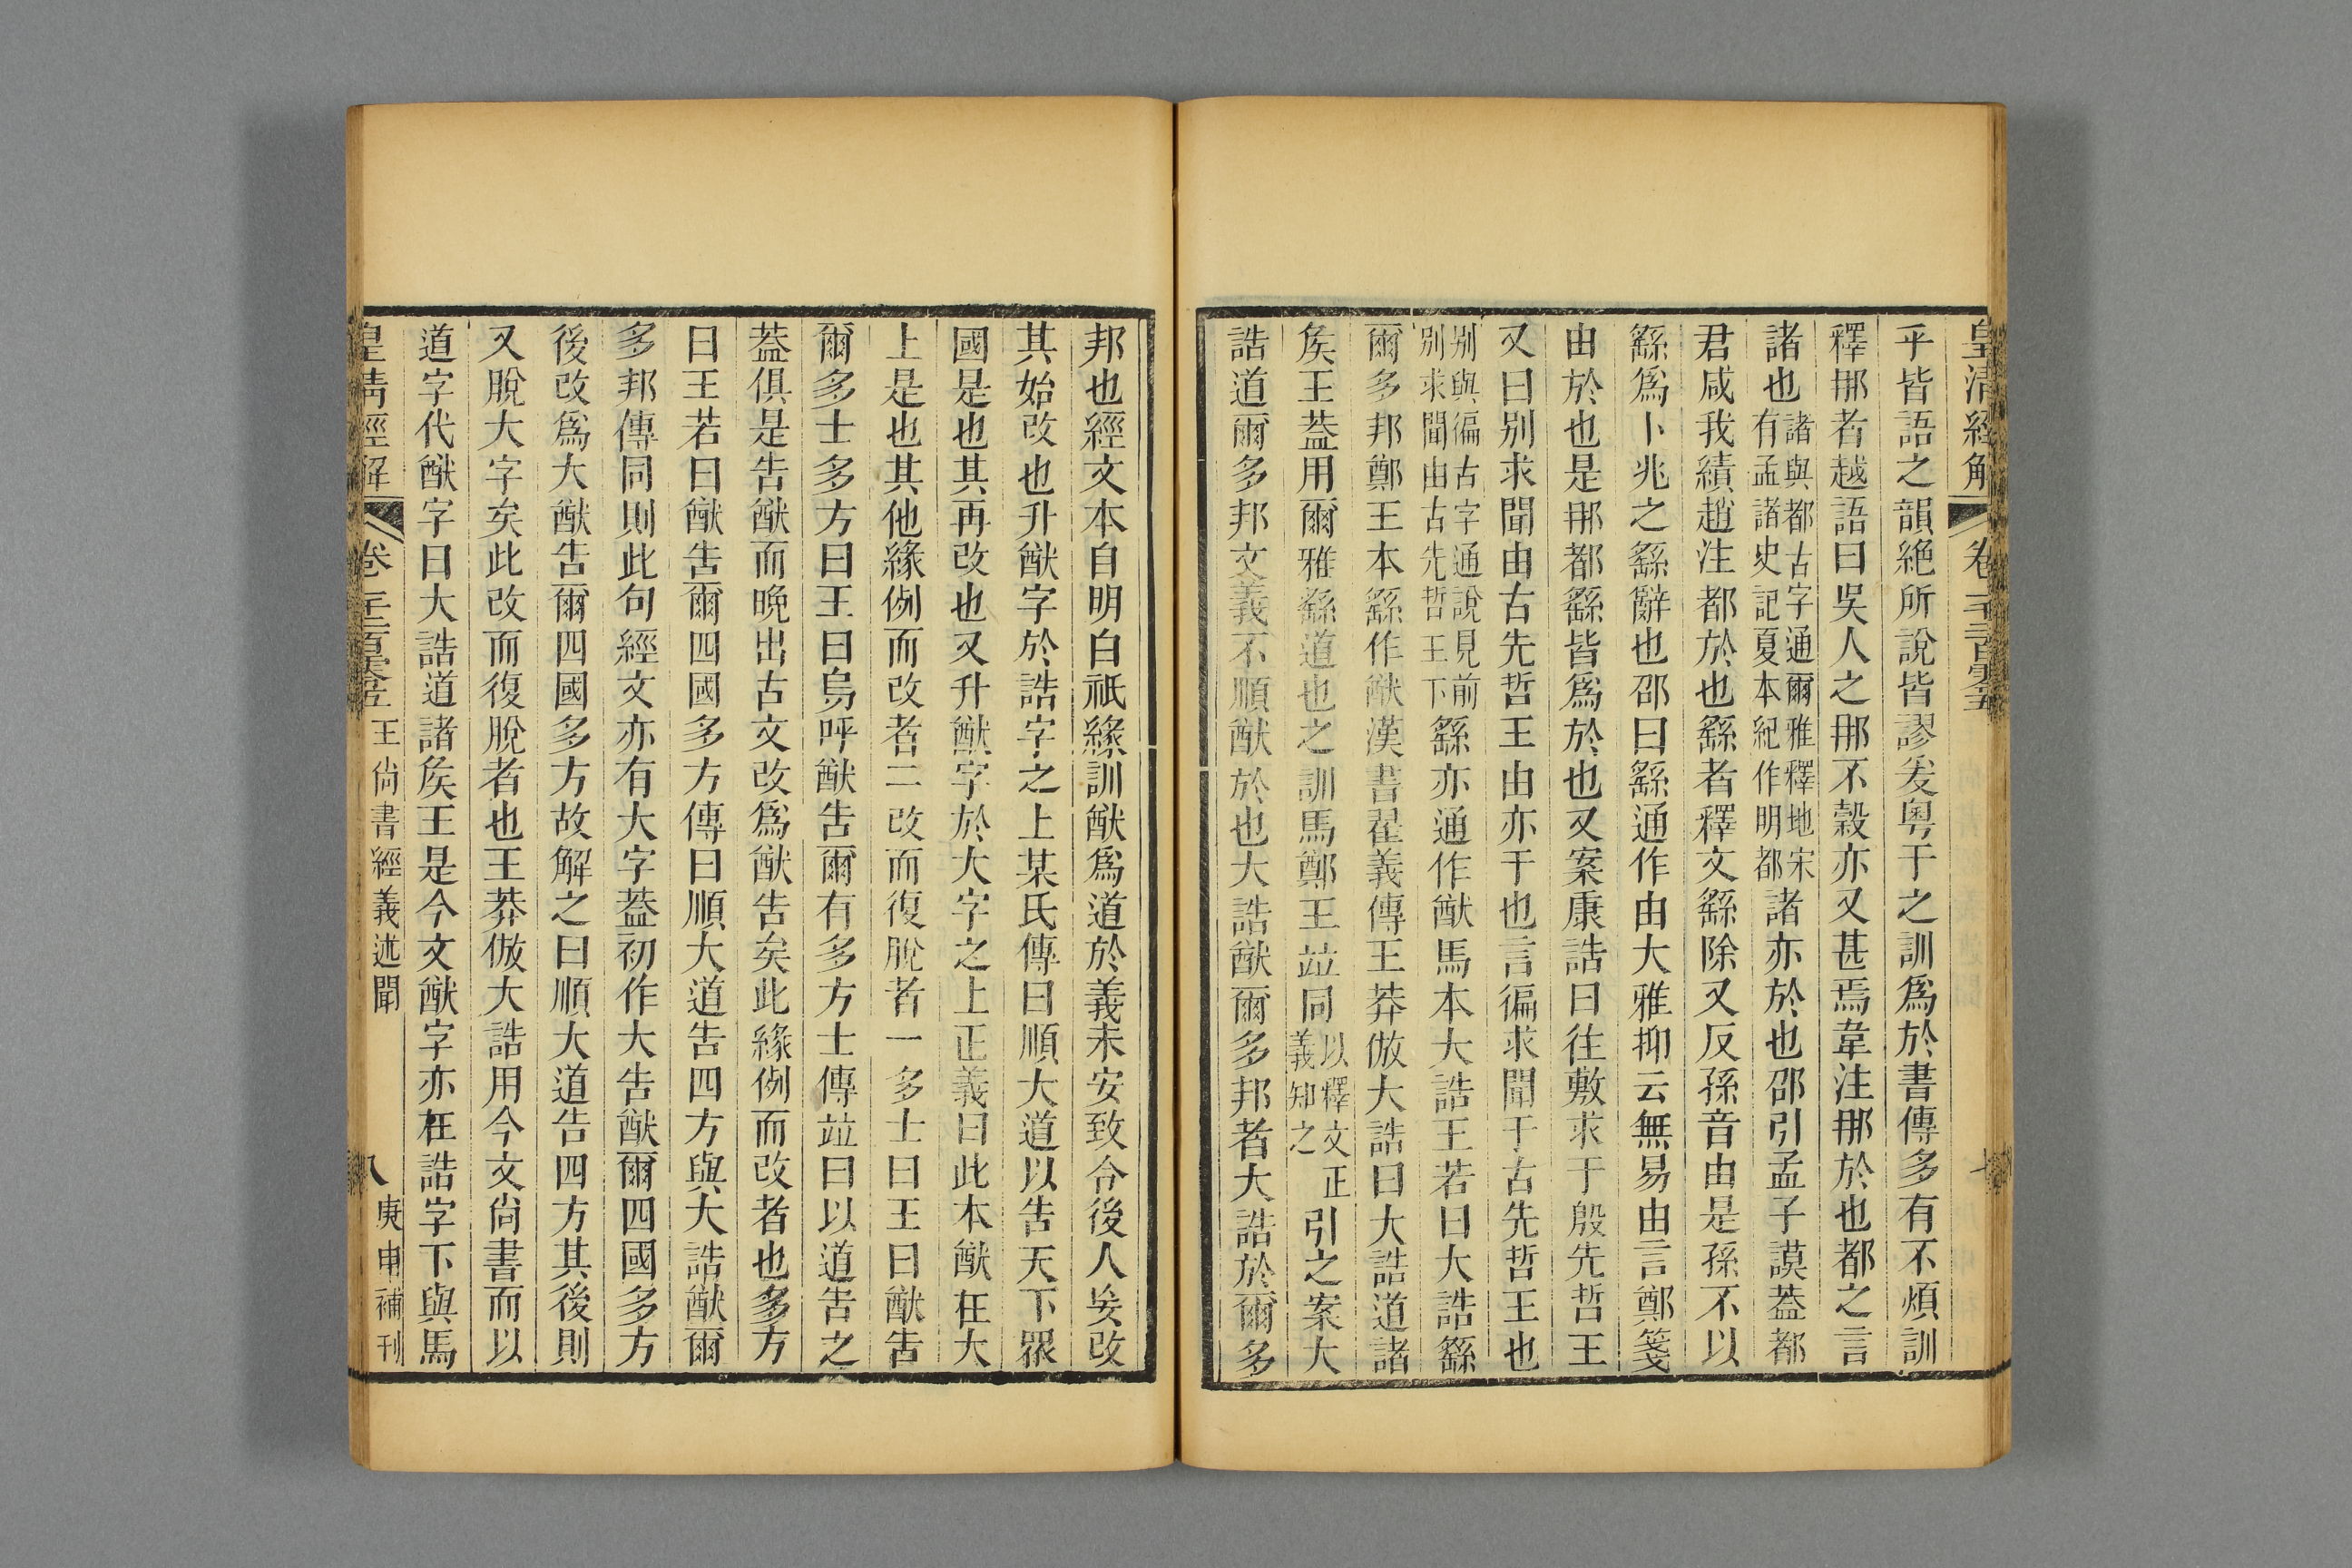 皇清經解
卷一千二百零五
七
乎皆語之韻絶所說皆謬爰粵于之訓爲於書傳多有不煩訓
釋那者越語曰吳人之那不穀亦又甚焉韋注那於也都之言
諸也諸與都古字通爾雅釋地宋有孟諸史記夏本紀作明都諸亦於也邵引孟子謨葢都
君咸我績趙注都於也繇者釋文繇除又反孫音由是孫不以
繇爲卜兆之繇辭也邵曰繇通作由大雅抑云無易由言鄭箋
由於也是那都繇皆爲於也又案康誥曰往敷求于殷先哲王
又曰别求聞由古先哲王由亦于也言徧求聞于古先哲王也
别與徧古字通說見前别求聞由古先哲王下繇亦通作猷馬本大誥王若曰大誥繇
爾多邦鄭王本繇作猷漢書翟義傳王莽倣大誥曰大誥道諸
矦王葢用爾雅繇道也之訓馬鄭王竝同以釋文正義知之引之案大
誥道爾多邦文義不順猷於也大誥猷爾多邦者大誥於爾多
邦也經文本自明白祇緣訓猷爲道於義未安致令後人妄改
其始改也升猷字於誥字之上某氏傳曰順大道以告天下眾
國是也其再改也又升猷字於大字之上正義曰此本猷在大
上是也其他緣例而改者二改而復脫者一多士曰王曰猷告
爾多士多方曰王曰烏呼猷告爾有多方士傳竝曰以道告之
葢俱是告猷而晚出古文改爲猷告矣此緣例而改者也多方
曰王若曰猷告爾四國多方傳曰順大道告四方與大誥猷爾
多邦傳同則此句經文亦有大字葢初作大告猷爾四國多方
後改爲大猷告爾四國多方故解之曰順大道告四方其後則
又脫大字矣此改而復脫者也王莽倣大誥用今文尙書而以
道字代猷字曰大誥道諸矦王是今文猷字亦在誥字下與馬
皇清經解
卷一千二百零五
王尙書經義述聞
八
庚申補刊